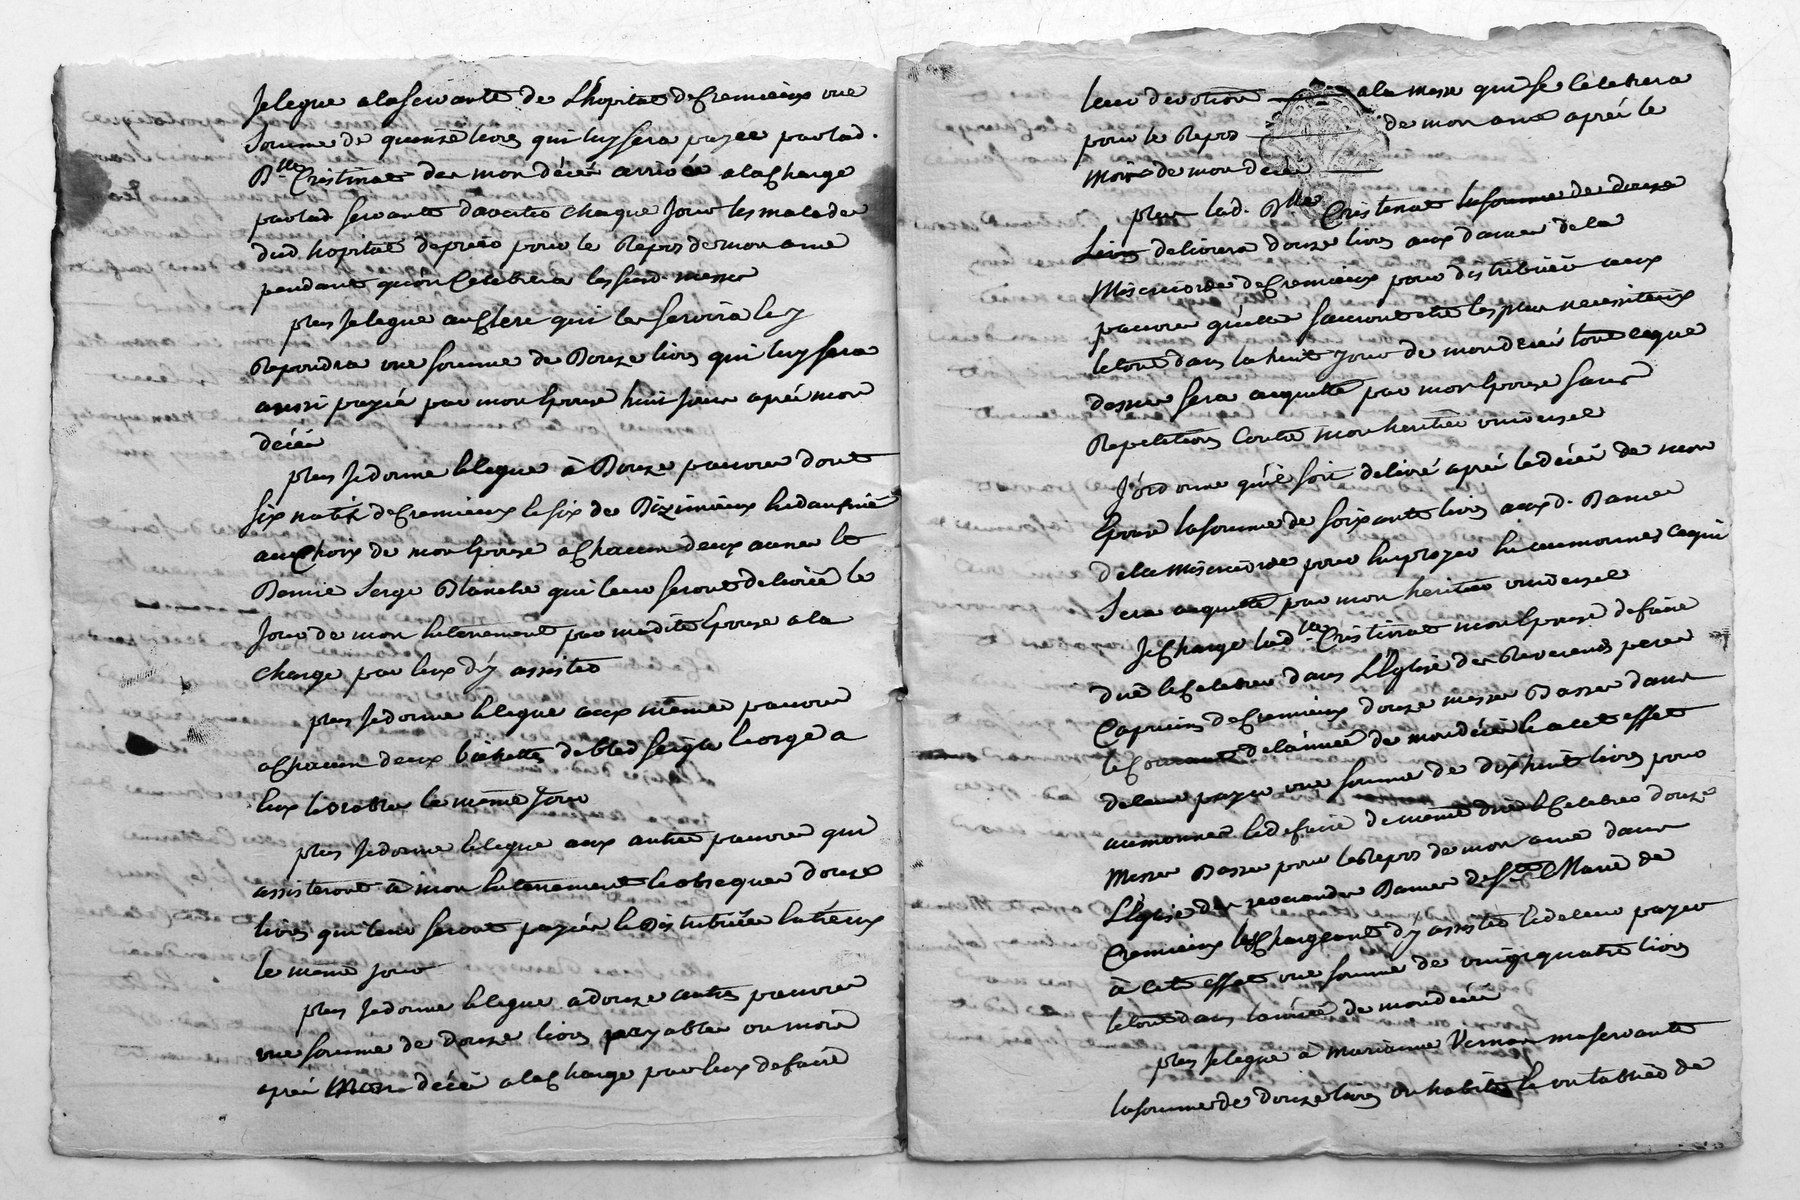 Je legue a la servante de L'hopital de Cremieux une
Somme de quinze livres qui luy sera payee par lad.
Dlle Cristinat des mon décés arrivé a la Charge
par lad. servante d'avertir chaque Jour les malades
dud. hopital de prier pour le Repos de mon ame
pendant qu'on Celebrera lessusd. messes
plus Je legue au Clerc qui les servira le y
Repondra une somme de Douze livres qui luy sera
aussi payée par mon Epouse huit Jours aprés mon
décés
plus Je donne & legue à Douze pauvres dont
six natifs de Cremieux & six de Dizimieux en dauphiné
au Choix de mon Epouse a Chacun deux aunes &
Demie Serge Blanche qui leur seront delivrée le
Jour de mon Enterrement par madite Epouse a la
charge par Eux d'y assister
plus Je donne & legue aux mêmes pauvres
a Chacun deux bichettes de bled seigle & orge a
Eux livrables le même Jour
plus Je donne & legue aux autres pauvres qui
assisteront à mon Enterrement & obseques douze
livres qui leur seront payées & Distribuées Entr'eux
le même jour
plus Je donne & legue a douze autres pauvres
une somme de douze livres payables un mois
aprés mon décés a la Charge par Eux de faire
leur devotion a la messe qui se Celebrera
pour le Repos de mon ame aprés le
mois de mon décés
plus lad. Dlle Cristinat la somme de douze
Livres delivrera douze livres aux dames de la
Misericorde de Cremieux pour distribuer aux
pauvres qu'elle sauront etre les plus necessiteux
le tout dans la huit Jours de mon décés tout ce que
dessus sera acquitté par mon Epouse sans
Repetitions Contre mon heritier universel
J'ordonne qu'il soit delivré aprés le décés de mon
Epouse la somme de soixante livres aux d. Dames
de la Misericorde pour Employer En aumônes ce qui
Sera acquitté par mon heritier universel
Je Charge lad. Dlle Cristinat mon Epouse de faire
dire & Celebrer dans L'Eglise des Reverends peres
Capucins de Cremieux douze messes Basses dans
le Courant de l'année de mon décés & a cet effet
de leur payer une somme de dix huit livres pour
aumones & de faire de même dire & Celebrer douze
Messes Basses pour le Repos de mon ame dans
L'Eglise des reverendes Dames de Ste Marie de
Cremieux les Chargeant d'y assister & de leur payer
à cet effet une somme de vingt quatre livres
le tout dans l'année de mon décés
plus Je legue à marianne ma servante
la somme de douze livres un habit & un tablier de